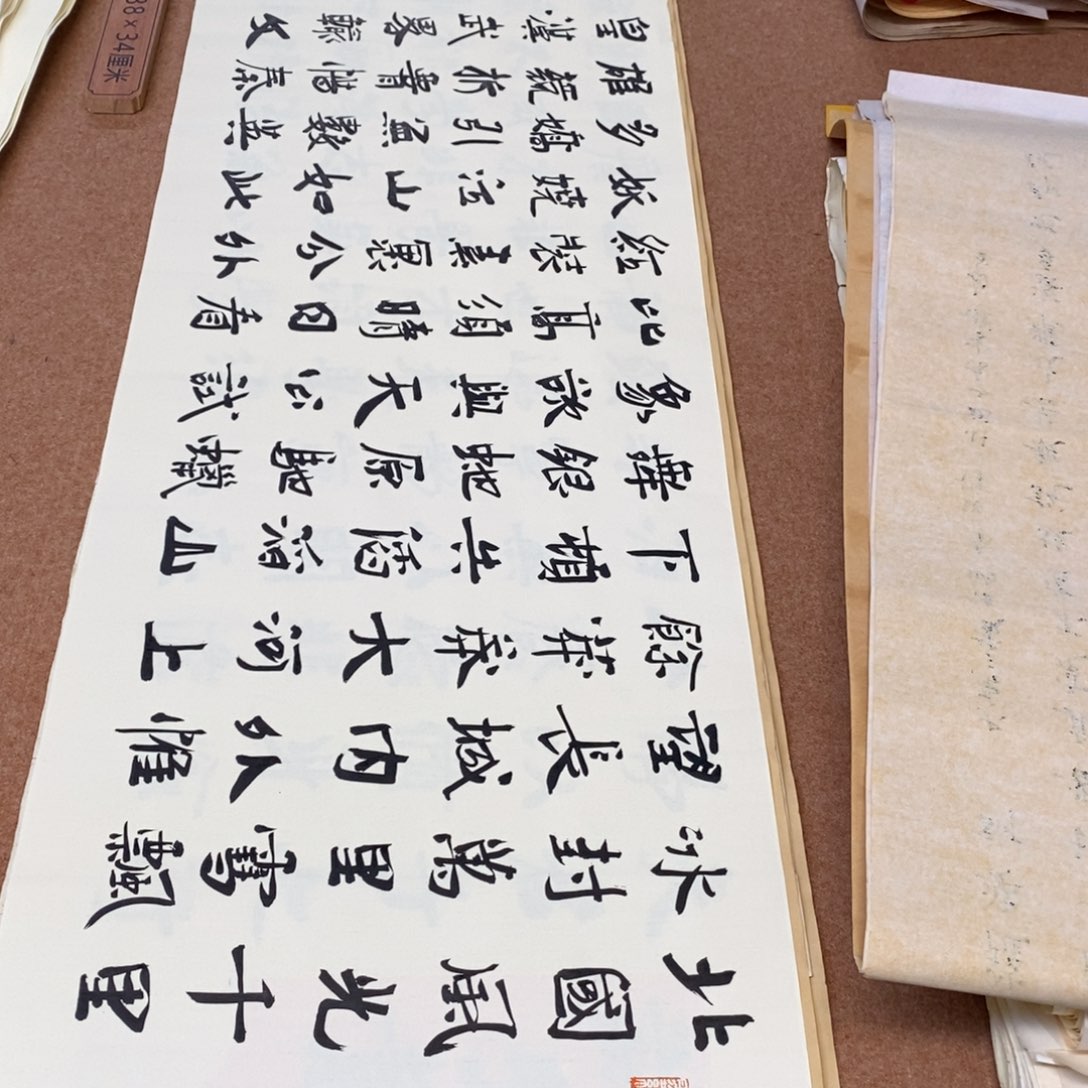 北國風光千里
冰封萬里雪飄
望長城內外惟
餘莽莽大河上
下頓失滔滔山
舞銀蛇原馳蠟
象欲與天公試
比高須晴日看
紅裝素裹分外
妖嬈江山如此
多嬌引無數英
雄競折腰惜秦
皇漢武略輸文
38×34厘米